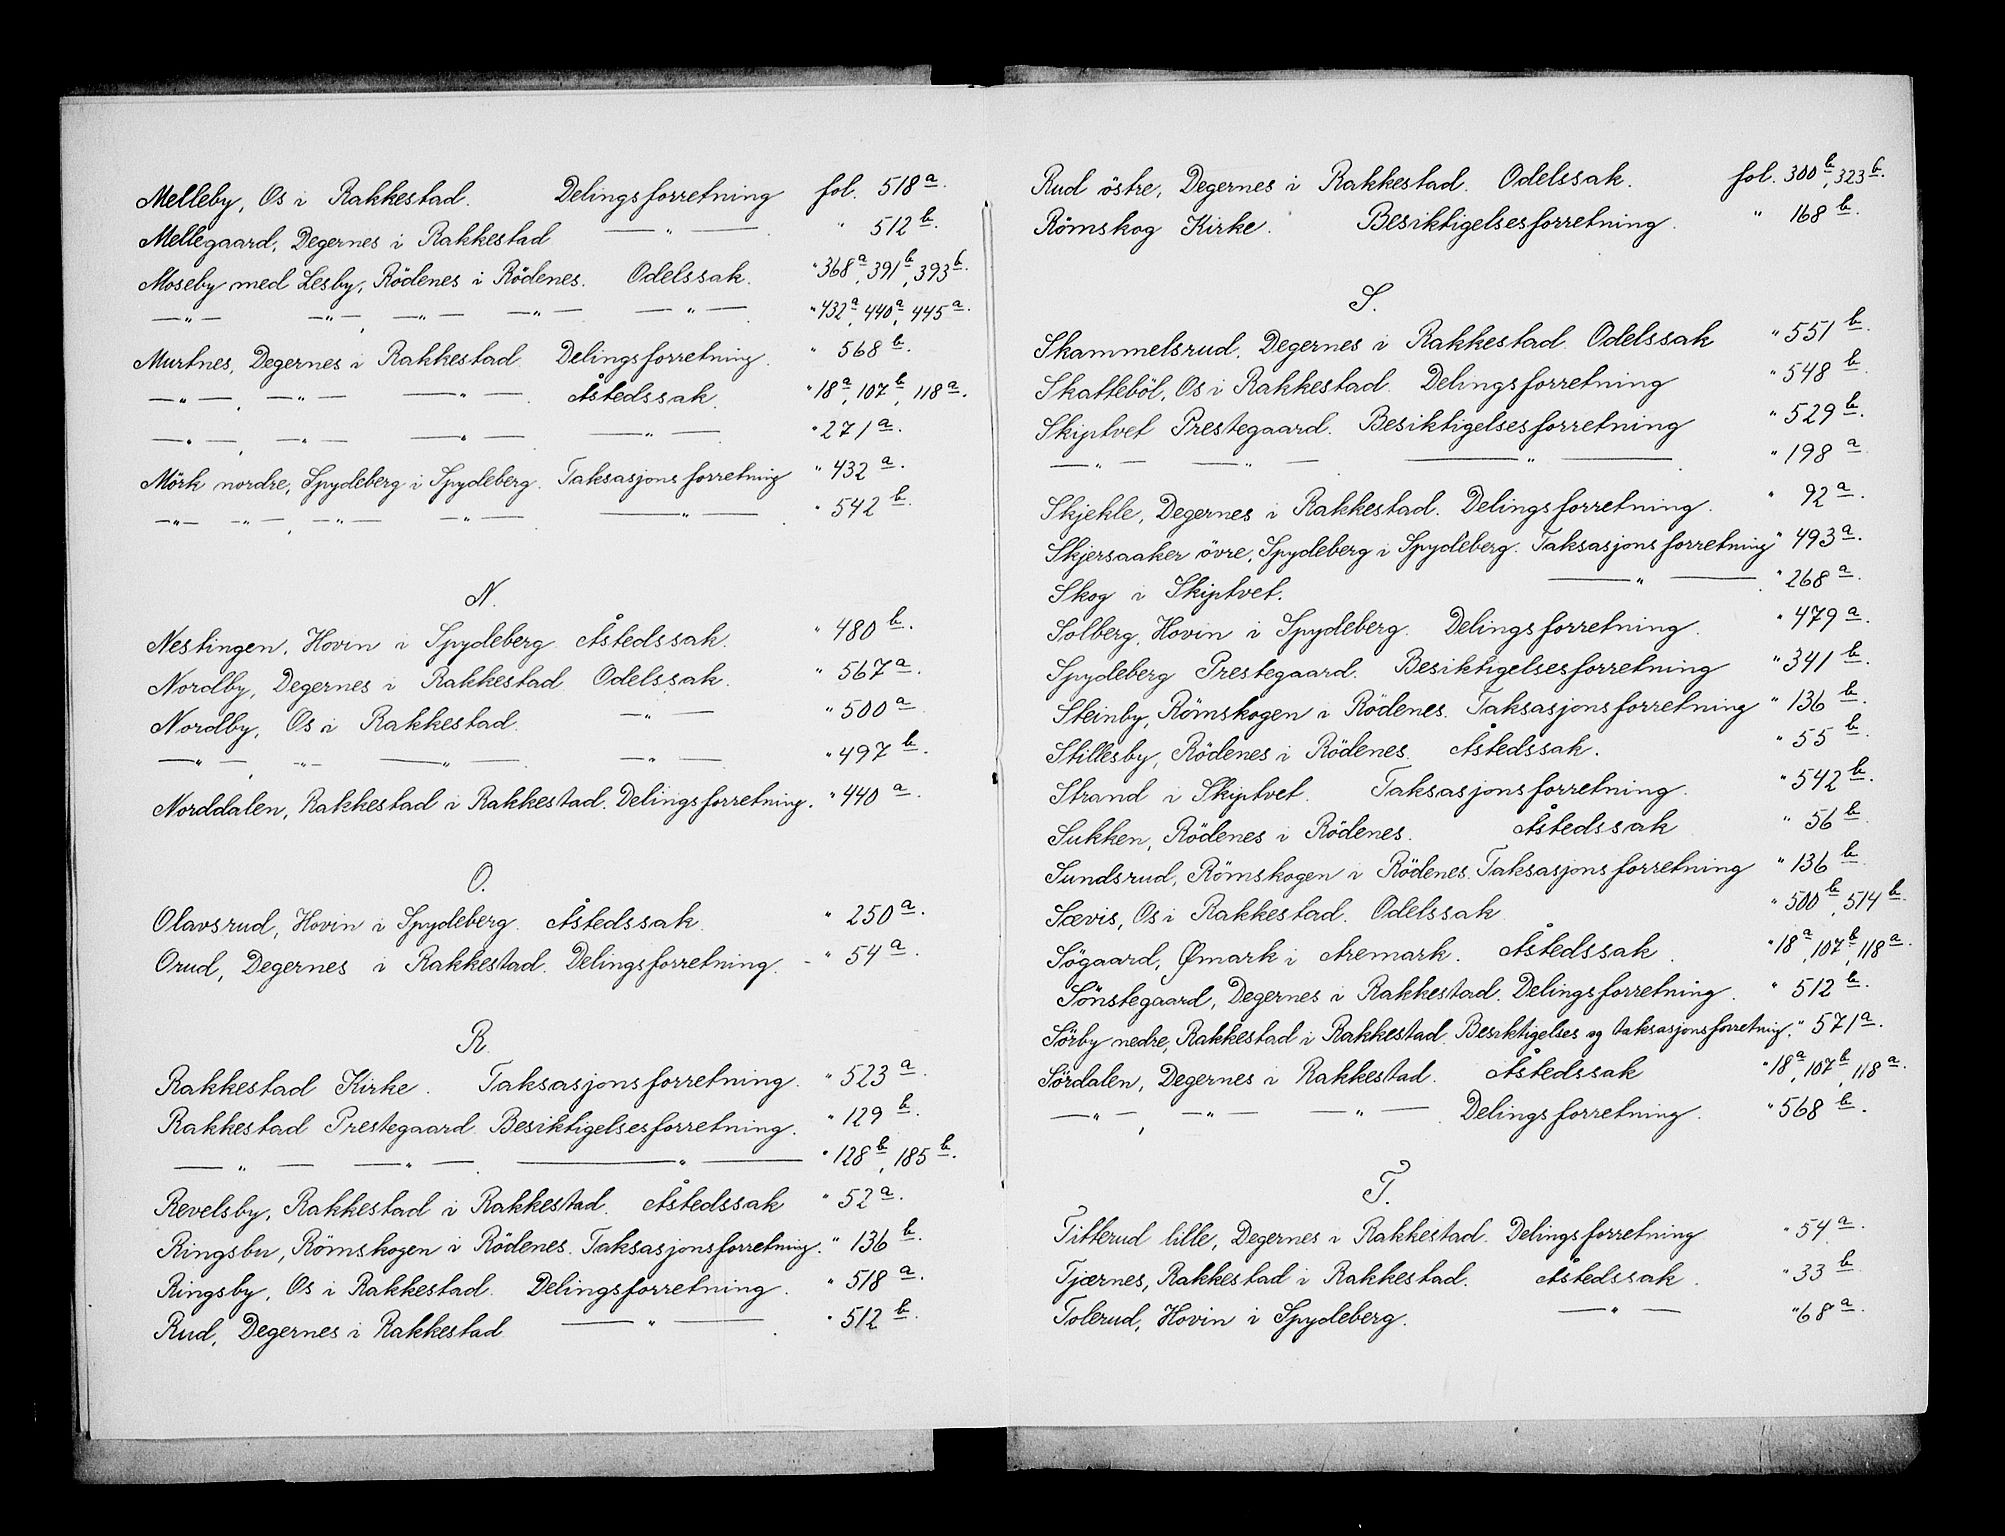 Melleby, Os i Rakkestad. Delingsforretning fol. 518 a.
Mellegaard, Degernes i Rakkestad —„— „ 512 b.
Moseby med Lesby, Rödenes i Rödenes. Odelssak. „ 368 a, 391 b, 393 b.
—„— —„—, —„— —„— —„—. „ 432 a, 440 a, 445 a.
Murtnes, Degernes i Rakkestad. Delingsforretning. „ 568 b.
—„—, —„— —„—. Åstedssak. „ 18 a, 107 b, 118 a.
—„—, —„— „ —„— „ 271 a.
Mörk nordre, Spydeberg i Spydeberg. Taksasjonsforretning „ 432 a.
—„— —„—, —„— —„—. —„—. „ 542 b.
N.
Nestingen, Hovin i Spydeberg Åstedssak. „ 480 b.
Nordby, Degernes i Rakkestad Odelssak. „ 567 a.
Nordby, Os i Rakkestad. —„— „ 500 a.
—„—, —„— —„—. —„— „ 497 b.
Norddalen, Rakkestad i Rakkestad. Delingsforretning. „ 440 a.
O.
Olavsrud, Hovin i Spydeberg. Åstedssak. „ 250 a.
Orud, Degernes i Rakkestad. Delingsforretning. „ 54 a.
R.
Rakkestad Kirke. Taksasjonsforretning. „ 523 a.
Rakkestad Prestegaard. Besiktigelsesforretning. „ 129 b.
—„— —„—. —„— „ 128 b, 185 b.
Revelsby, Rakkestad i Rakkestad. Åstedssak „ 52 a.
Ringsbu, Römskogen i Rödenes. Taksasjonsforretning. „ 136 b.
Ringsby, Os i Rakkestad. Delingsforretning. „ 518 a.
Rud, Degernes i Rakkestad —„—. „ 512 b.
Rud östre, Degernes i Rakkestad. Odelssak. fol. 300 b, 323 b.
Römskog Kirke. Besiktigelsesforretning. „ 168 b.
S.
Skammelsrud, Degernes i Rakkestad. Odelssak „ 551 b.
Skatteböl, Os i Rakkestad. Delingsforretning „ 548 b.
Skiptvet Prestegaard. Besiktigelsesforretning „ 529 b.
—„— —„— —„—. „ 198 a
Skjekle, Degernes i Rakkestad. Delingsforretning. „ 92 a.
Skjersaaker övre, Spydeberg i Spydeberg. Taksasjonsforretning „ 493 a.
Skog i Skiptvet. —„—. „ 268 a.
Solberg, Hovin i Spydeberg. Delingsforretning. „ 479 a.
Spydeberg Prestegaard. Besiktigelsesforretning „ 341 b.
Steinby, Römskogen i Rödenes. Taksasjonsforretning „ 136 b.
Stillesby, Rödenes i Rödenes. Åstedssak. „ 55 b.
Strand i Skiptvet. Taksasjonsforretning. „ 542 b.
Sukken, Rödenes i Rödenes. Åstedssak „ 56 b.
Sundsrud, Römskogen i Rödenes. Taksasjonsforretning „ 136 b.
Sævis, Os i Rakkestad. Odelssak „ 500 b, 514 b.
Søgaard, Ømark i Aremark. Åstedssak. „ 18 a, 107 b, 118 a.
Sönstegaard, Degernes i Rakkestad. Delingsforretning. „ 512 b.
Sörby nedre, Rakkestad i Rakkestad. Besiktigelses og taksasjonsforretning. „ 571 a.
Sördalen, Degernes i Rakkestad. Åstedssak „ 18 a, 107 b, 118 a.
—„—, —„— —„—. Delingsforretning. „ 568 b.
T.
Titterud lille, Degernes i Rakkestad. Delingsforretning „ 54 a.
Tjærnes, Rakkestad i Rakkestad. Åstedssak. „ 33 b.
Tolerud, Hovin i Spydeberg. —„— „ 68 a.